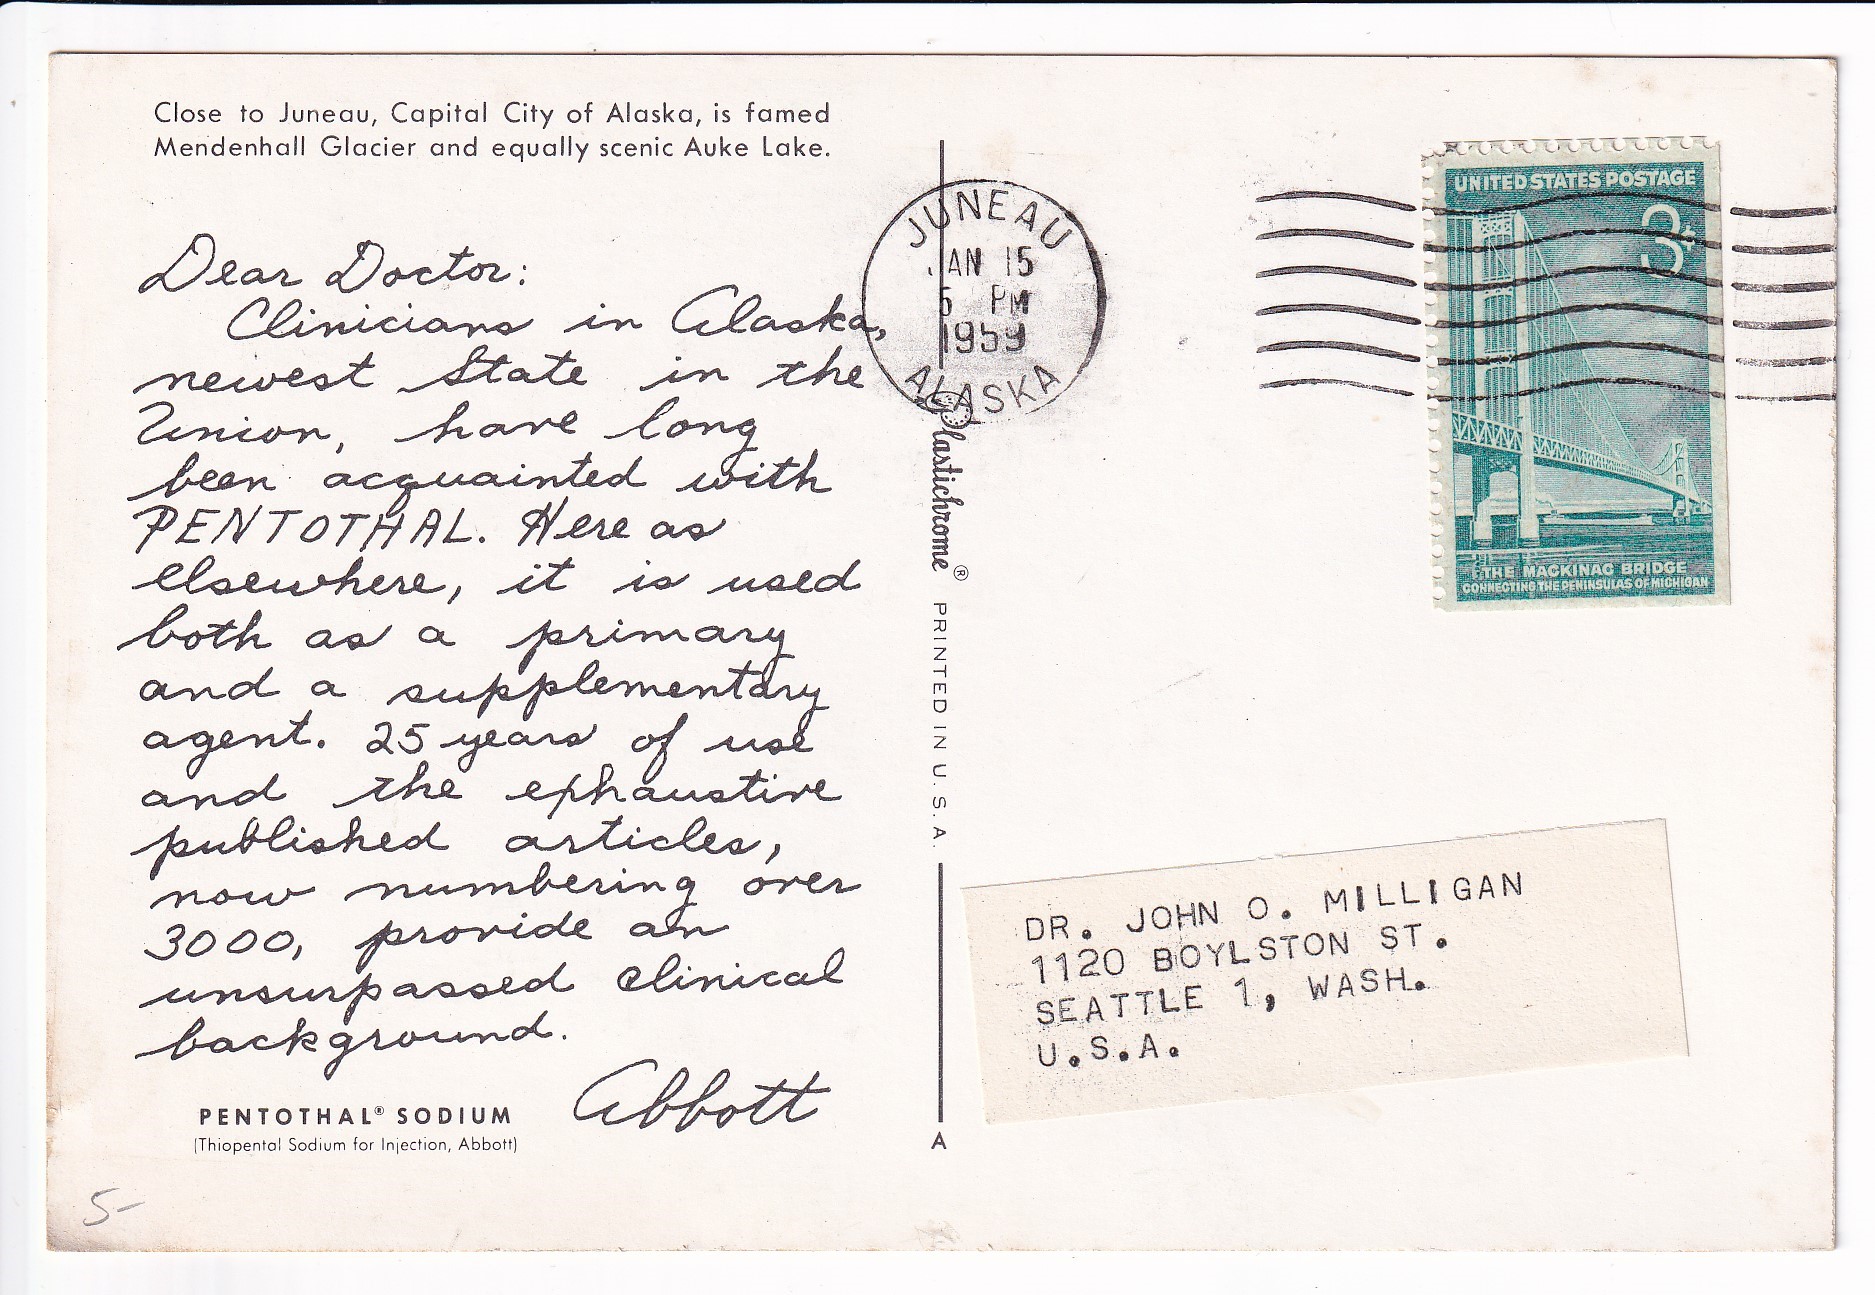 Close to Juneau, Capital City of Alaska, is famed
Mendenhall Glacier and equally scenic Auke Lake.
Dear Doctor:
Clinicians in Alaska,
newest State in the
Union, have long
been acquainted with
PENTOTHAL. Here as
elsewhere, it is used
both as a primary
and a supplementary
agent. 25 years of use
and the exhaustive
published articles,
now numbering over
3000, provide an
unsurpassed clinical
background.
Abbott
PENTOTHAL® SODIUM
(Thiopental Sodium for Injection, Abbott)
5-
Plastichrome® PRINTED IN U.S.A.
A
JUNEAU
JAN 15
5 PM
1959
ALASKA
UNITED STATES POSTAGE
3¢
THE MACKINAC BRIDGE
CONNECTING THE PENINSULAS OF MICHIGAN
DR. JOHN O. MILLIGAN
1120 BOYLSTON ST.
SEATTLE 1, WASH.
U.S.A.